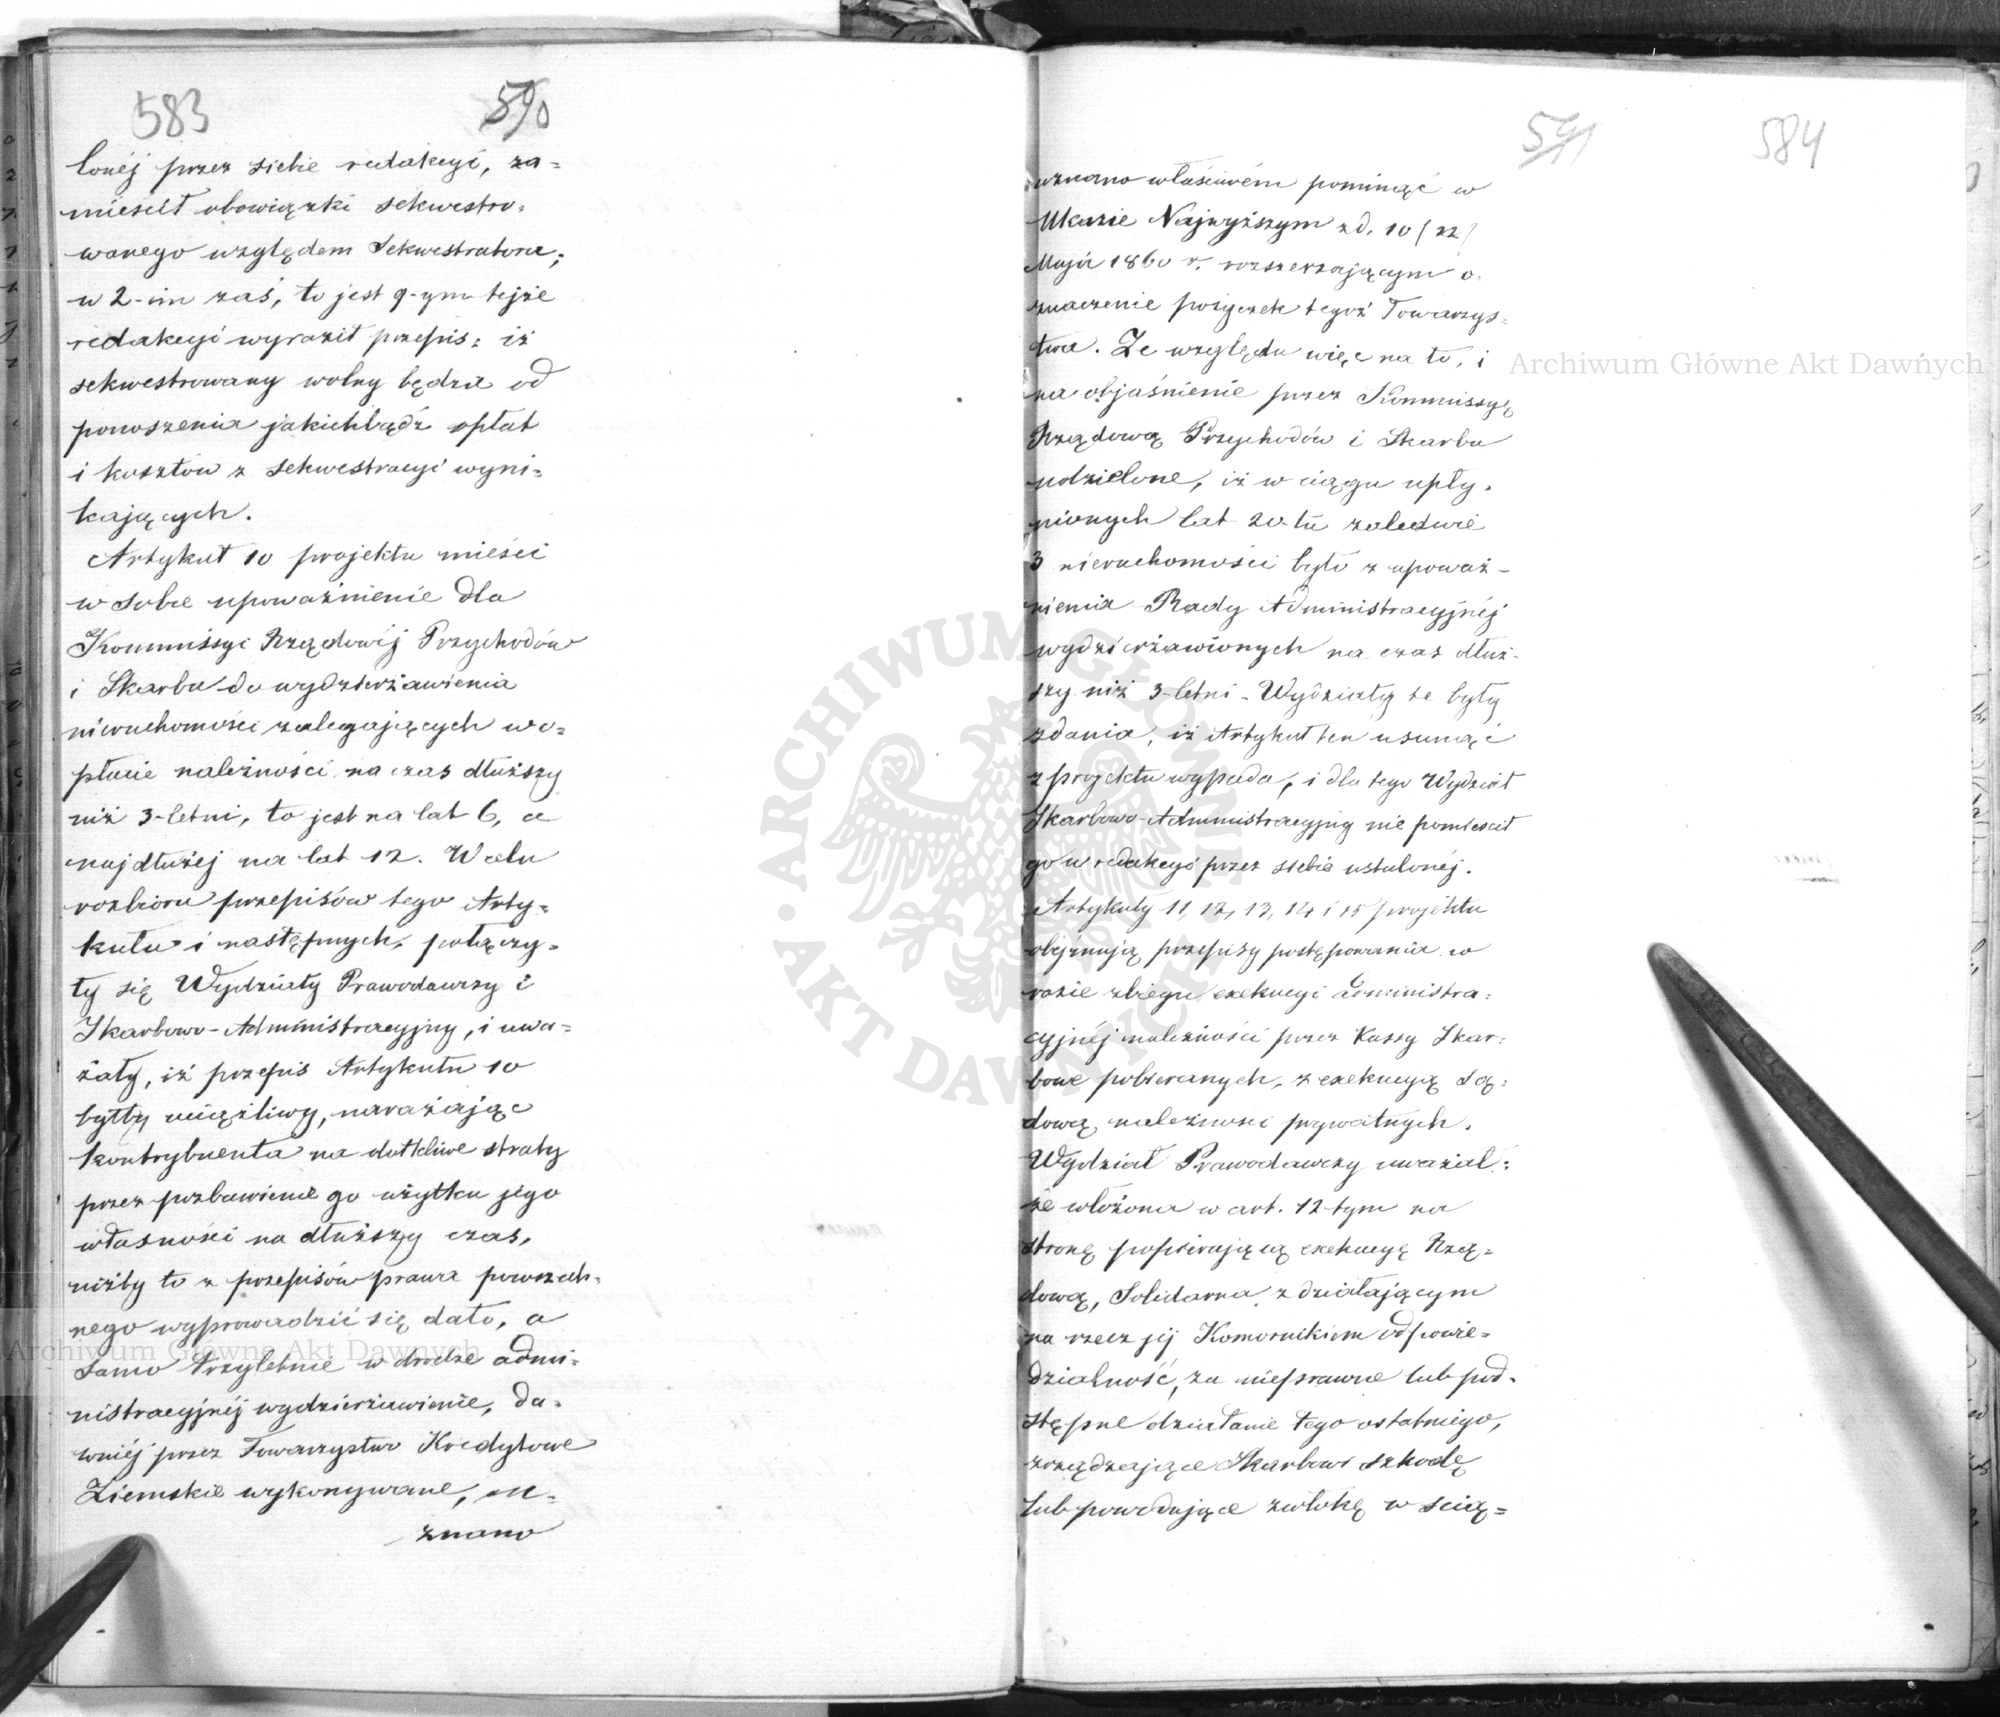 583
590
lonéj przez siebie redakcyi, za=
mieścił obowiązki sekwestro=
wanego względem Sekwestratora;
w 2-im zaś, to jest 9-ym tejże
redakcyi wyraził przepis: iż
sekwestrowany wolny będzie od
ponoszenia jakichbądź opłat
i kosztów z sekwestracyi wyni=
kających.
Artykuł 10 projektu mieści
w sobie upoważnienie dla
Kommissyi Rządowéj Przychodów
i Skarbu do wydzierżawienia
nieruchomości zalegających w o=
płacie należności na czas dłuższy
niż 3-letni, to jest na lat 6, a
najdłużej na lat 12. W celu
rozbioru przepisów tego Arty=
kułu i następnych, połączy=
ły się Wydziały Prawodawczy i
Skarbowo-Administracyjny, i uwa=
żały, iż przepis Artykułu 10
byłby uciążliwy, narażając
kontrybuenta na dotkliwe straty
przez pozbawienie go użytku jego
własności na dłuższy czas,
niżby to z przepisów prawa powszech=
nego wyprowadzić się dało, a
samo trzyletnie w drodze admi=
nistracyjnéj wydzierżawienie, da=
wniéj przez Towarzystwo Kredytowe
Ziemskie wykonywane, u=
znano
591
584
uznano właściwém pominąć w
Ukazie Najwyższym z d. 10 (22)
Maja 1860 r. rozszerzającym o=
znaczenie pożyczek tegoż Towarzys=
twa. Ze względu więc na to, i
na objaśnienie przez Kommissyę
Rządową Przychodów i Skarbu
udzielone, iż w ciągu upły=
nionych lat 20-tu zaledwie
3 nieruchomości było z upoważ=
nienia Rady Administracyjnéj
wydzierżawionych na czas dłuż=
szy niż 3-letni - Wydziały te były
zdania, iż Artykuł ten usunąć
z projektu wypada, i dla tego Wydział
Skarbowo-Administracyjny nie pomieścił
go w redakcyi przez siebie ustalonéj.
Artykuły 11, 12, 13, 14 i 15 projektu
obejmują przepisy postępowania w
razie zbiegu exekucyi administra=
cyjnéj należności przez Kassy Skar=
bowe pobieranych, z exekucyą są=
dową należności prywatnych.
Wydział Prawodawczy uważał:
że włożona w art. 12-tym na
stronę popierającą exekucyę Rzą=
dową, solidarna z działającym
na rzecz jéj Komornikiem odpowie=
dzialność, za nieprawne lub pod=
stępne działanie tego ostatniego,
zrządzające Skarbowi szkodę
lub powodujące zwłokę w ścią=
Archiwum Główne Akt Dawnych
Archiwum Główne Akt Dawnych
ARCHIWUM GŁÓWNE AKT DAWNYCH